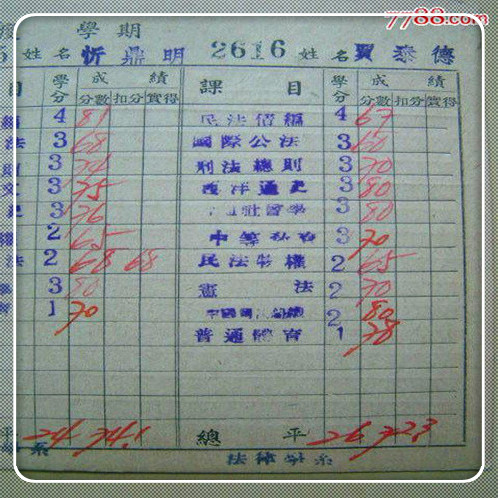 7788.com
學期
姓名 忻鼎明 2616 姓名 賈泰德
目 學分 成績 課目 學分 成績
分數 扣分 實得 分數 扣分 實得
編 4 81 民法債編 4 67
法 3 68 國際公法 3 60
則 3 74 刑法總則 3 70
3 75 西洋通史 3 80
史 3 76 社會學 3 80
2 65 中等 3 70
法 2 68 68 民法物權 2 65
3 80 憲法 2 70
1 70 中國 2 80
普通體育 1 78
24 74.1 總平 26 72.3
系 法律學系